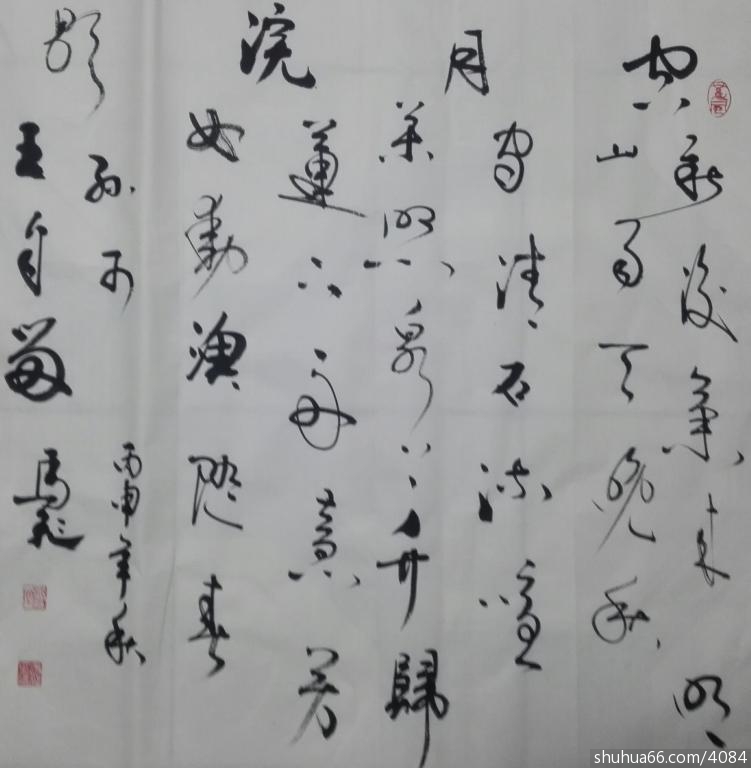 空山新雨後天氣晚來秋明
月松間照清泉石上流竹喧歸
浣女蓮動下漁舟隨意春芳
歇王孫自可留
丙申年秋
馬飛
shuhua66.com/4084